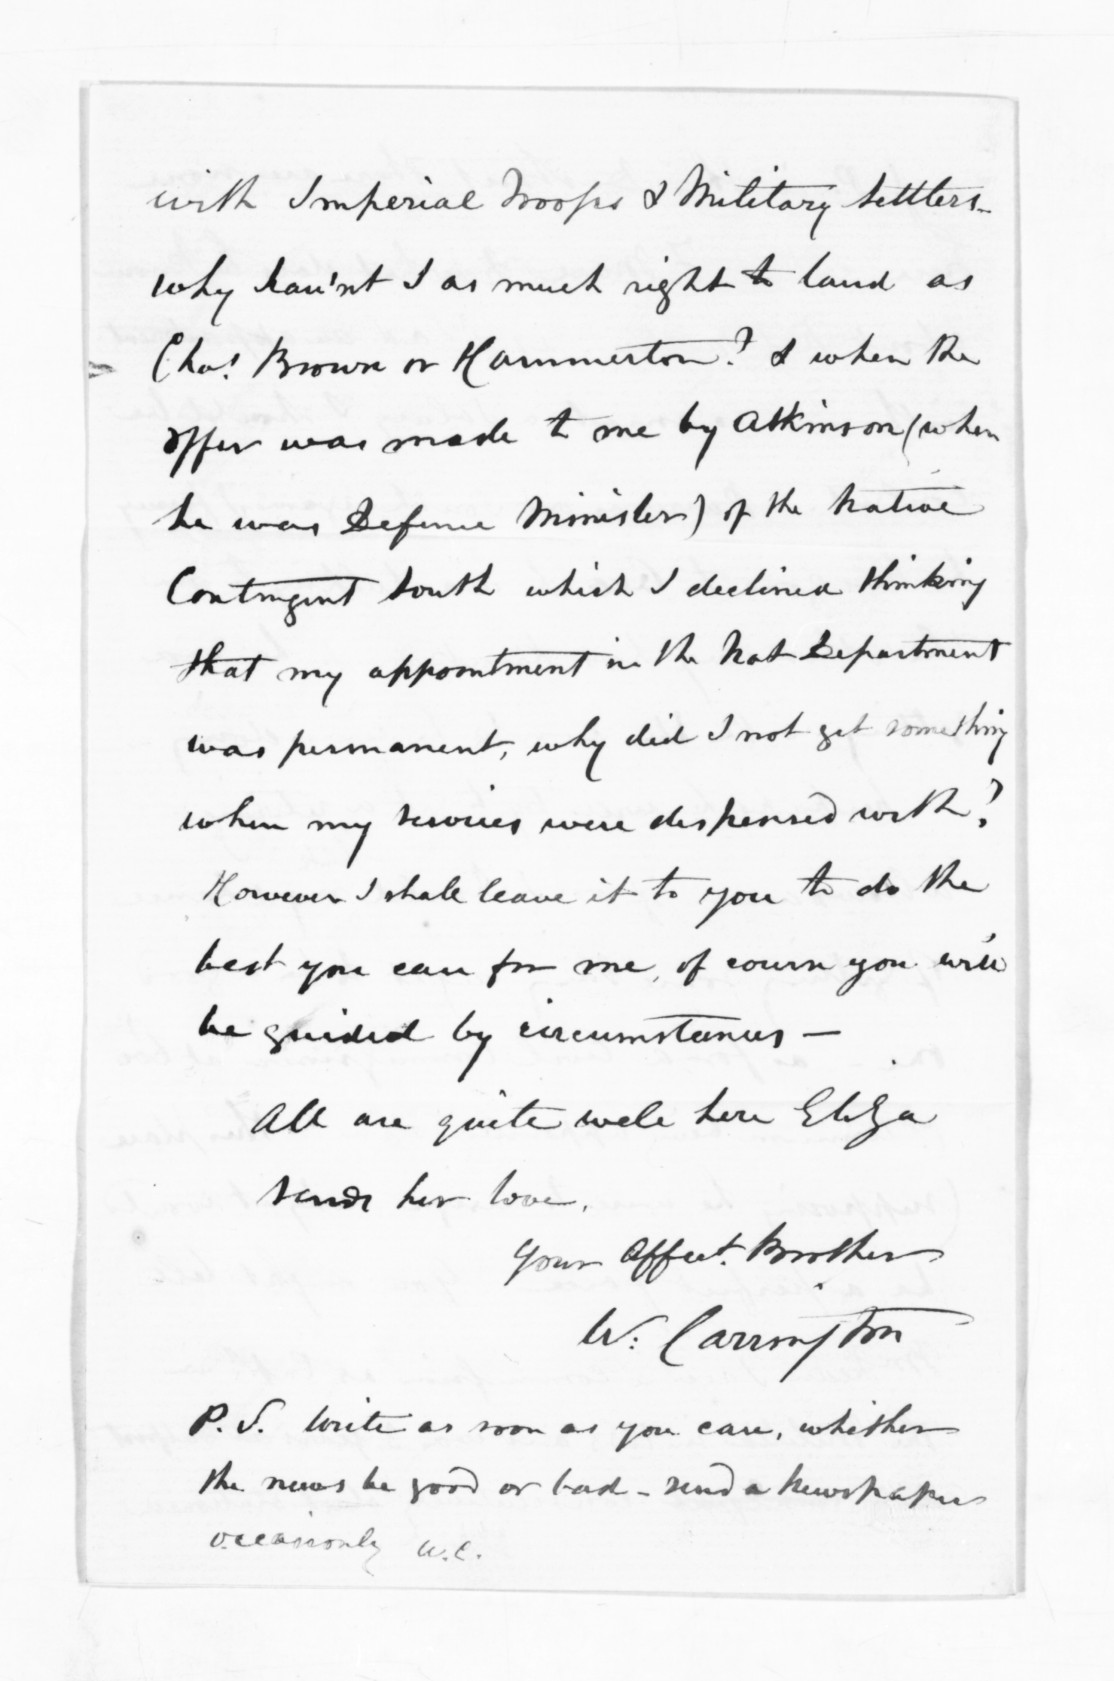 with Imperial Troops & Military Settlers_
why hav'nt I as much right to land as
Chas. Brown or Hammerton? & when the
offer was made to me by Atkinson (when
he was Defence Minister) of the Native
Contingent South which I declined thinking
that my appointment in the Nat Department
was permanent, why did I not get something
when my services were dispensed with?
However I shall leave it to you to do the
best you can for me, of course you will
be guided by circumstances —
All are quite well here Eliza
sends her love.
Your Affect. Brother
W. Carrington
P.S. Write as soon as you can, whether
the news be good or bad - send a Newspaper
occasionly W.C.